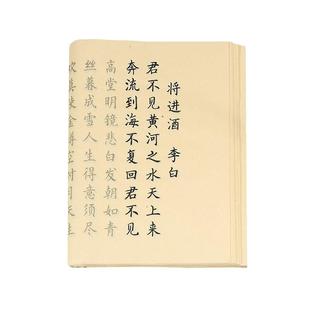 将进酒 李白
君不见黄河之水天上来
奔流到海不复回君不见
高堂明镜悲白发朝如青
丝暮成雪人生得意须尽
欢莫使金樽空对月天生